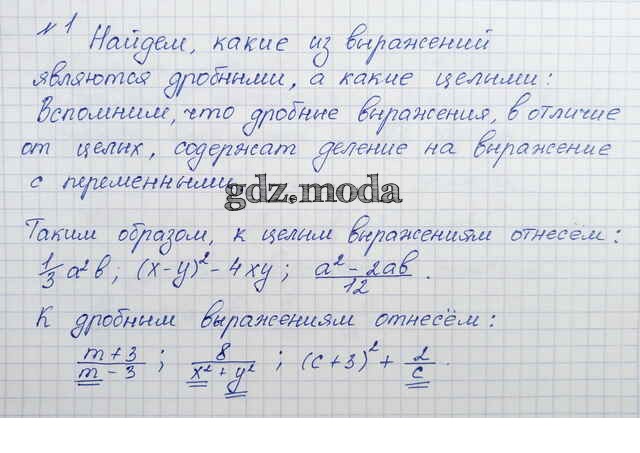 № 1 Найдем, какие из выражений
являются дробными, а какие целыми:
Вспомним, что дробные выражения, в отличие
от целых, содержат деление на выражение
с переменными.
gdz.moda
Таким образом, к целым выражениям отнесём:
1/3 a²b; (x-y)² - 4xy; (a² - 2ab)/12.
К дробным выражениям отнесём:
(m+3)/(m-3); 8/(x²+y²); (c+3)² + 2/c.